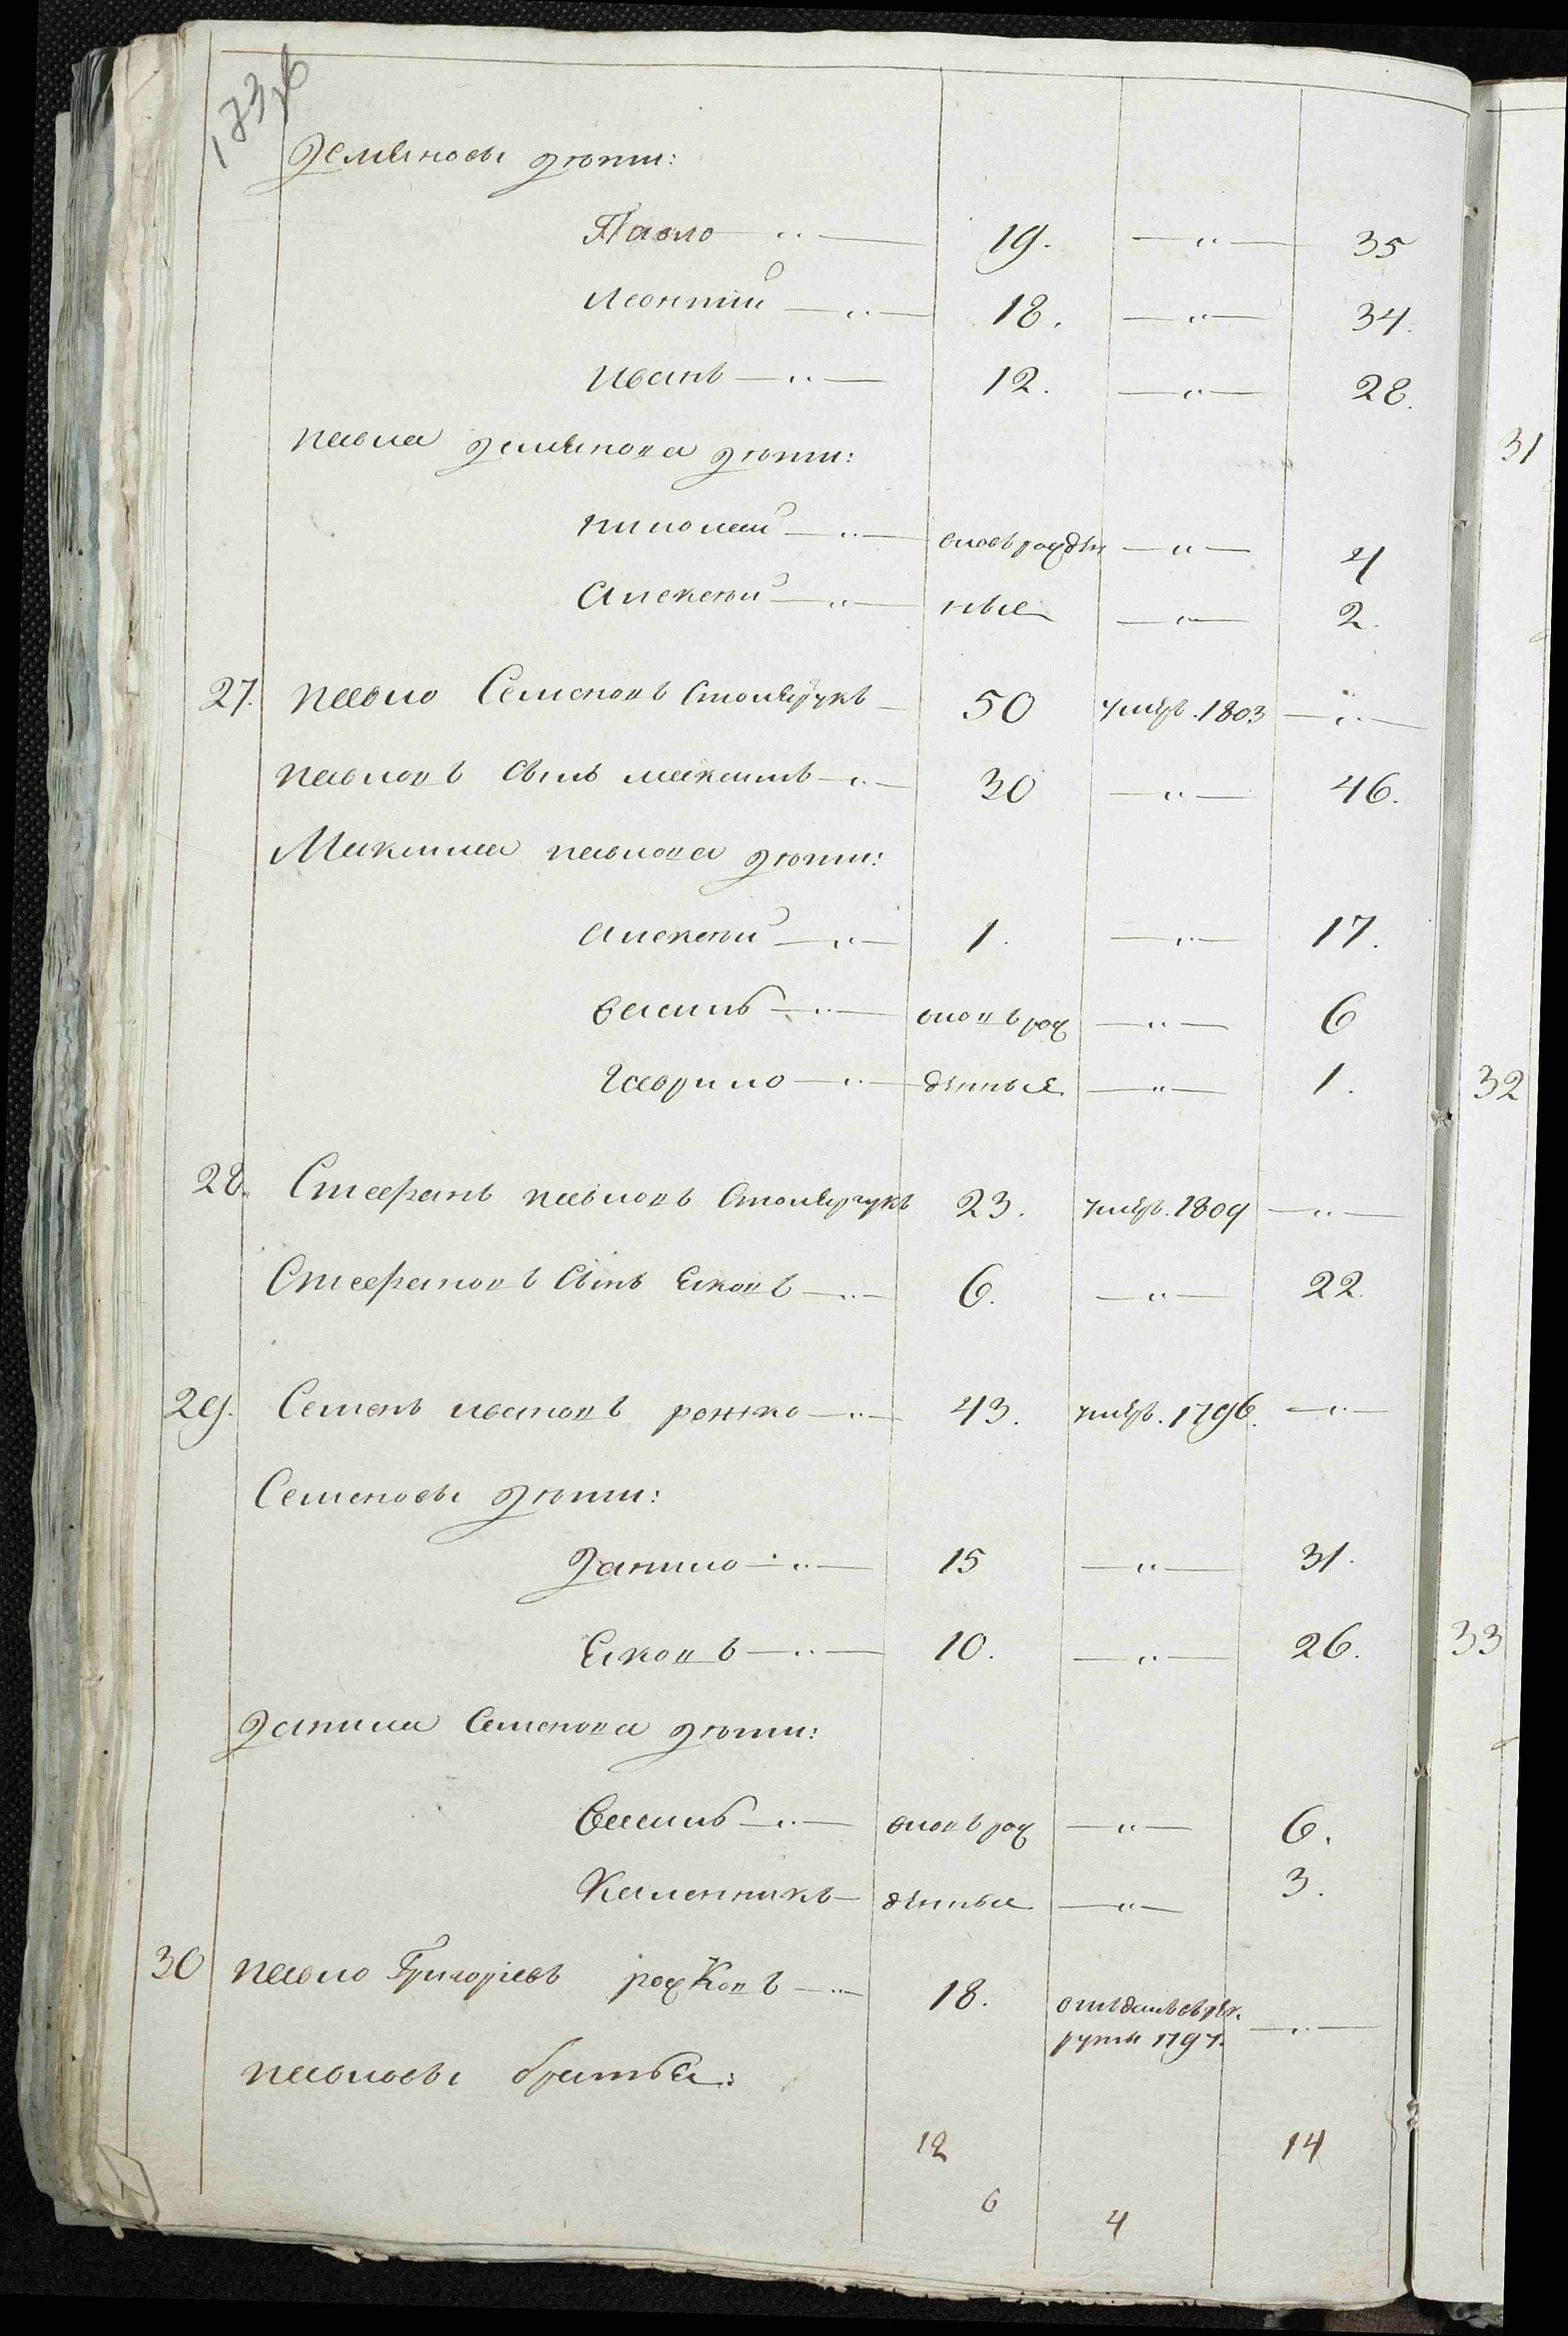 Демяновы дѣти:
Павло — " — 19. — " — 35
Леонтий — " — 18. — " — 34.
Иванъ — " — 12. — " — 28.
павла демянова дѣти:
николай — " — вновь рожден — " — 4
Алексѣй — " — ные — " — 2.
27. павло Семеновъ Столярчукъ — 50 умеръ. 1803 — " —
павловъ сынъ максимъ — " — 30 — " — 46.
Максима павлова дѣти:
алексѣй — " — 1. — " — 17.
василь — " — вновь рож — " — 6
Гаврило — " — денные — " — 1.
28. Стефанъ павловъ Столярчукъ 23. умеръ. 1809 — " —
Стефановъ сынъ Яковъ — " — 6. — " — 22.
29. Семенъ ивановъ рожко — " — 43. умеръ. 1796. — " —
Семеновы дѣти:
Данило — " — 15 — " — 31.
Яковъ — " — 10. — " — 26.
Данила Семенова дѣти:
Василь — " — вновь рож — " — 6.
Каленникъ — денные — " — 3.
30 павло Григорьевъ рожковъ — " — 18. отъданъ въ рек.
руты 1797. — " —
павловы братья:
12 14
6 4
31
32
33